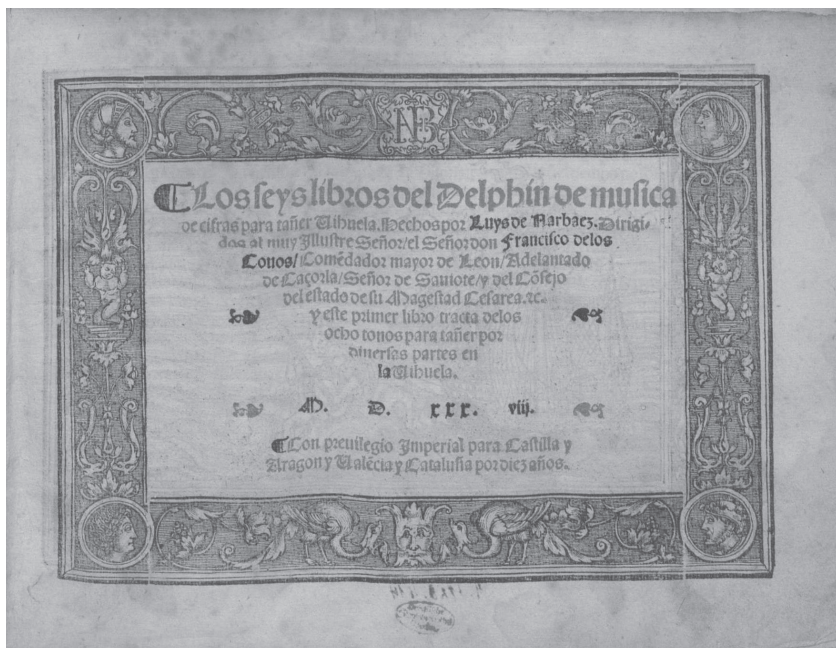 ¶ Los seys libros del Delphin de musica
de cifras para tañer Uihuela. Hechos por Luys de Narbaez. Dirigi-
dos al muy Illustre Señor/el Señor don Francisco delos
Couos/Comẽdador mayor de Leon/Adelantado
de Caçorla/Señor de Sauiote/y del Cõsejo
del estado de su Magestad Cesarea.⁊c.
y este primer libro tracta delos
ocho tonos para tañer por
diuersas partes en
la Uihuela.
M. D. xxx. viij.
¶ Con preuilegio Imperial para Castilla y
Aragon y Ualẽcia y Cataluña por diez años.